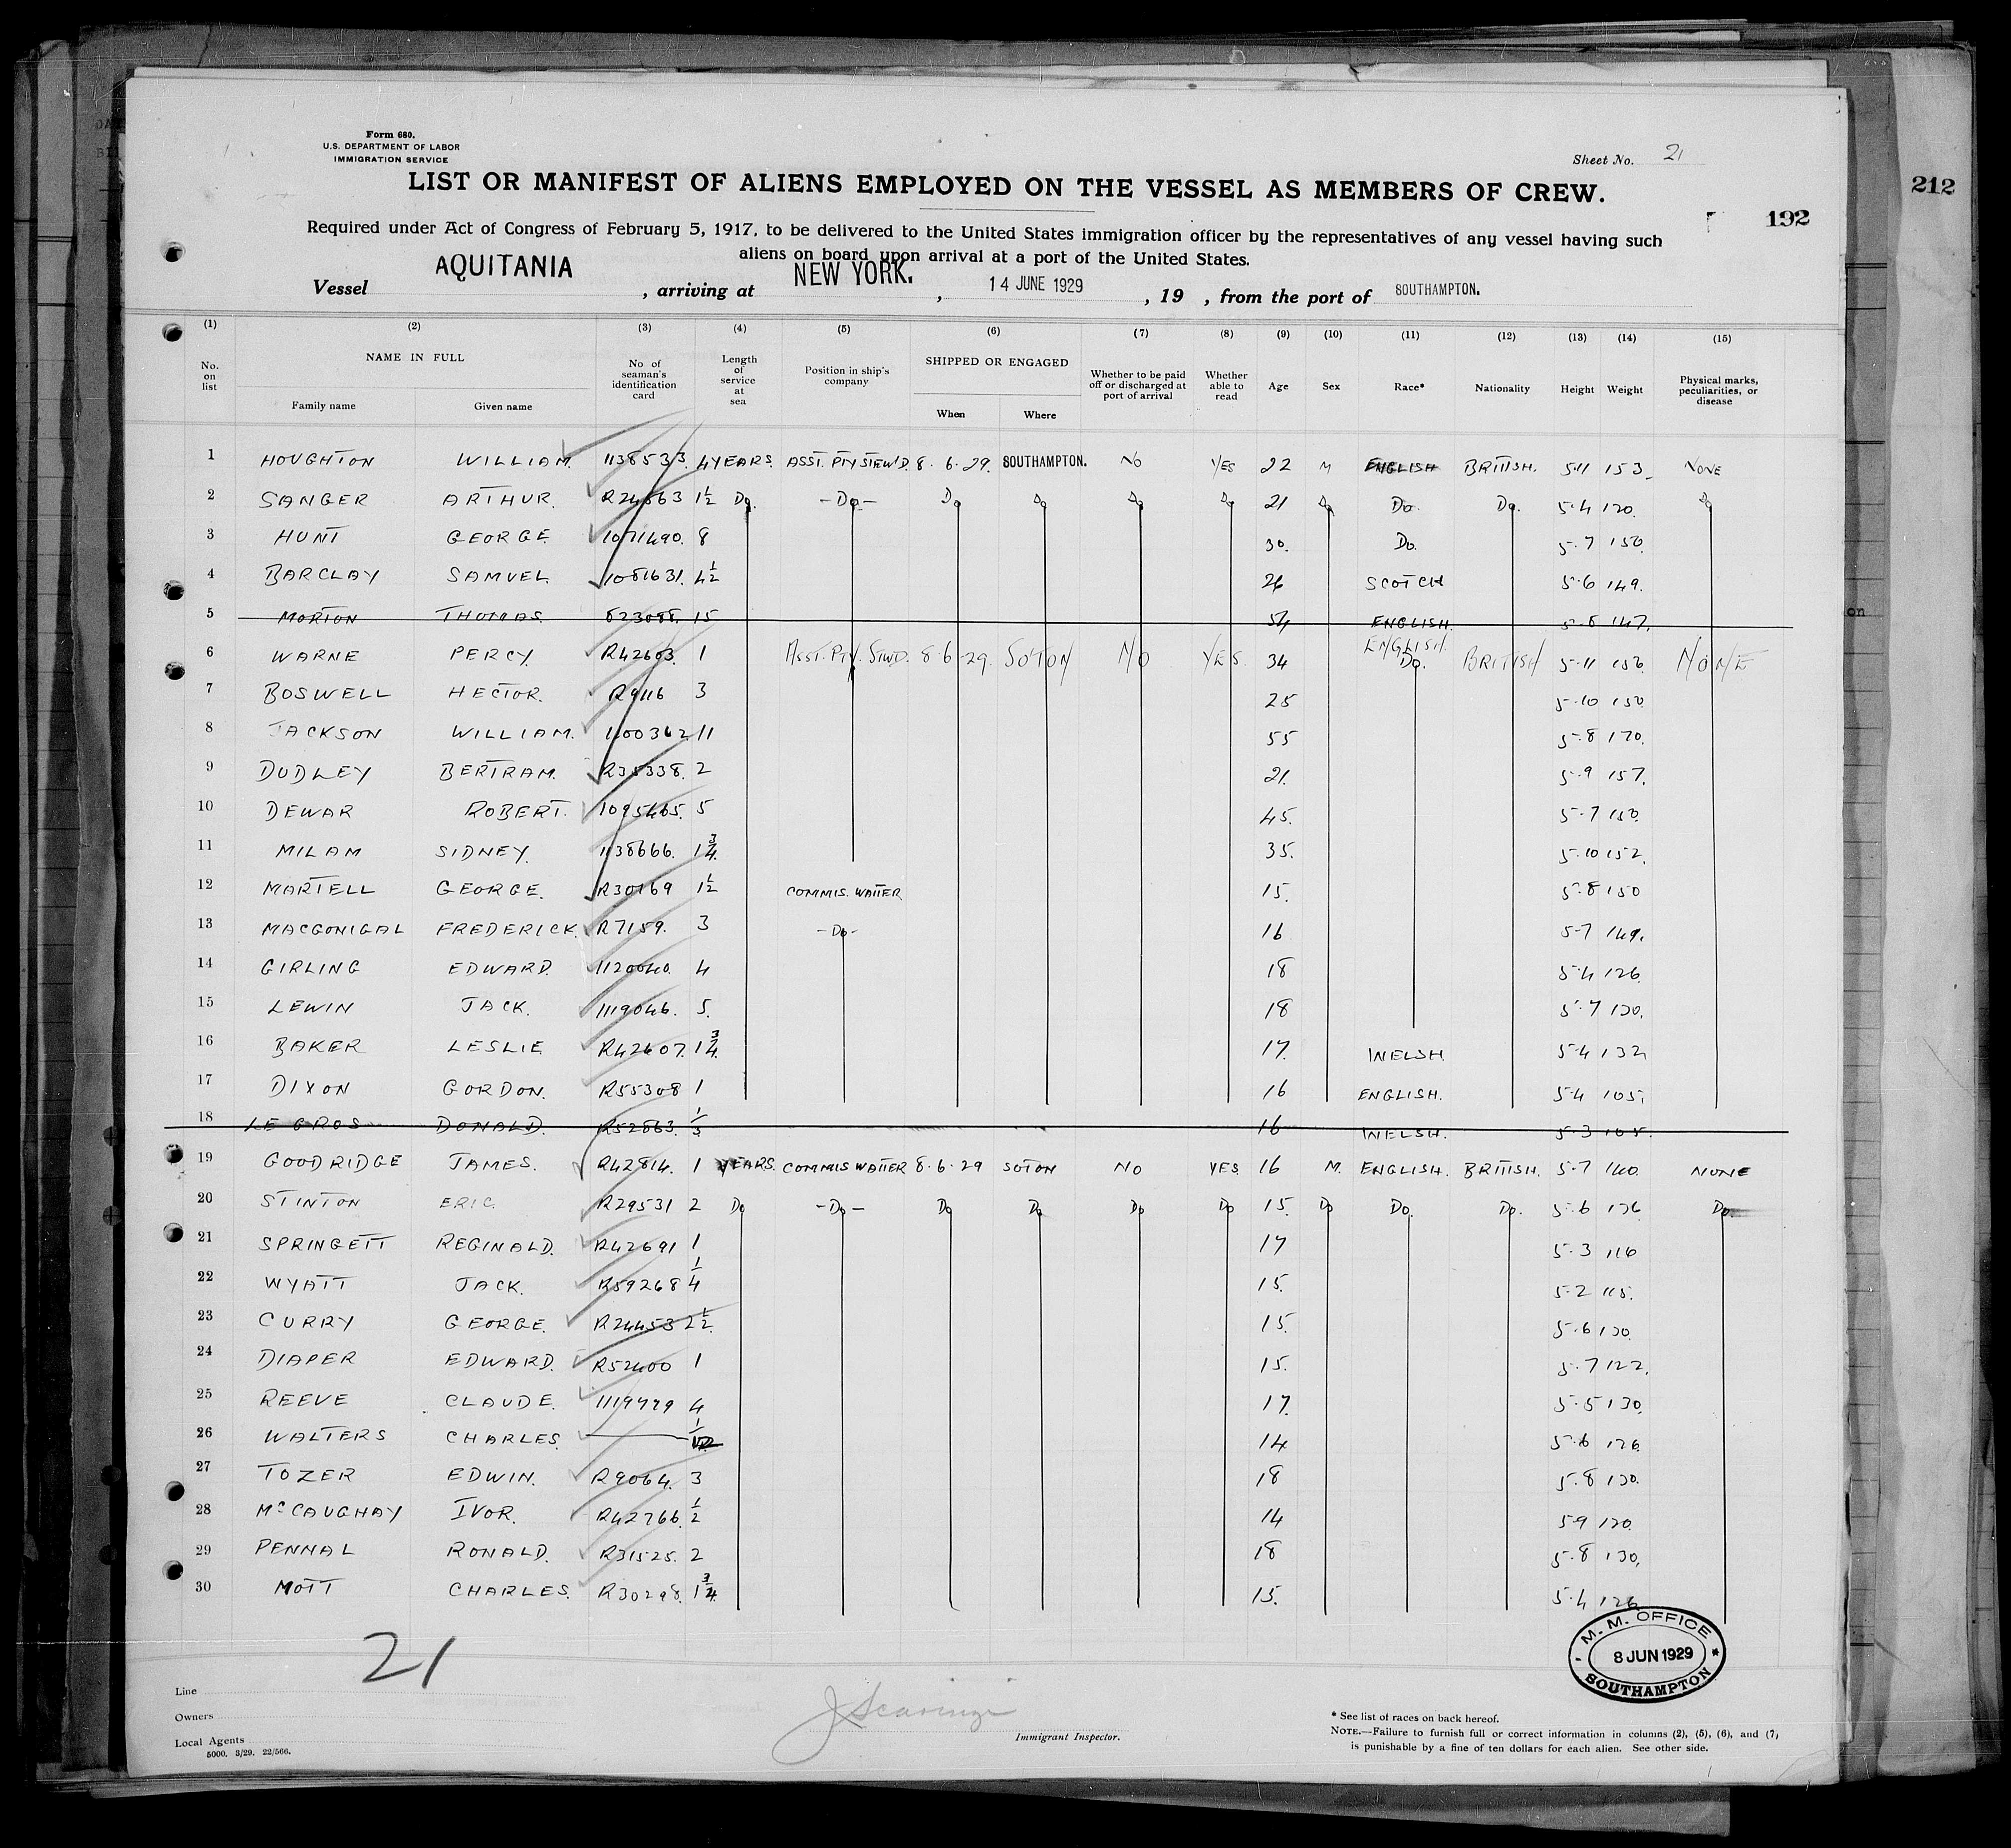 Form 680.
U.S. DEPARTMENT OF LABOR
IMMIGRATION SERVICE
Sheet No. 21
LIST OR MANIFEST OF ALIENS EMPLOYED ON THE VESSEL AS MEMBERS OF CREW.
212
192
Required under Act of Congress of February 5, 1917, to be delivered to the United States immigration officer by the representatives of any vessel having such
aliens on board upon arrival at a port of the United States.
Vessel AQUITANIA, arriving at NEW YORK., 14 JUNE 1929, 19 , from the port of SOUTHAMPTON.
(1) (2) (3) (4) (5) (6) (7) (8) (9) (10) (11) (12) (13) (14) (15)
No. on list NAME IN FULL Family name Given name No. of seaman's identification card Length of service at sea Position in ship's company SHIPPED OR ENGAGED When Where Whether to be paid off or discharged at port of arrival Whether able to read Age Sex Race* Nationality Height Weight Physical marks, peculiarities, or disease
1 HOUGHTON WILLIAM. 1138533. 4 YEARS. ASST. PTY STEW'D. 8.6.29. SOUTHAMPTON. NO YES 22 M ENGLISH BRITISH. 5.11 153. NONE
2 SANGER ARTHUR. R24863 1½ Do. -Do- Do Do Do Do 21 Do Do. Do. 5.4 120. Do
3 HUNT GEORGE 1071490. 8 30. Do. 5.7 150.
4 BARCLAY SAMUEL 1081631. 4½ 26 SCOTCH 5.6 149.
5 MORTON THOMAS. 823088. 15 54 ENGLISH. 5.8 147.
6 WARNE PERCY. R42603. 1 ASST. PTY. STWD. 8.6.29. SOTON NO YES. 34 ENGLISH. Do. BRITISH 5.11 156. NONE
7 BOSWELL HECTOR. R9116 3 25 5.10 150.
8 JACKSON WILLIAM. 1100362. 11 55 5.8 170.
9 DUDLEY BERTRAM. R35338. 2 21. 5.9 157.
10 DEWAR ROBERT. 1095465. 5 45. 5.7 150.
11 MILAM SIDNEY. 1138666. 1¾. 35. 5.10 152.
12 MARTELL GEORGE. R30169 1½ COMMIS. WAITER 15. 5.8 150
13 MACGONIGAL FREDERICK. R7159. 3 -Do- 16 5.7 149.
14 GIRLING EDWARD. 1120040. 4 18 5.4 126.
15 LEWIN JACK. 1119046. 5. 18 5.7 130.
16 BAKER LESLIE R42607. 1¾. 17. WELSH. 5.4 132
17 DIXON GORDON. R55308 1 16 ENGLISH. 5.4 105.
18 LE GROS DONALD. R52863. 16 WELSH. 5.3 105.
19 GOODRIDGE JAMES. R42814. 1 YEARS. COMMIS WAITER 8.6.29 SOTON NO YES. 16 M. ENGLISH. BRITISH. 5.7 140. NONE
20 STINTON ERIC. R29531 2 Do -Do- Do Do Do Do 15. Do Do. Do. 5.6 136 Do.
21 SPRINGETT REGINALD. R42691 1 17 5.3 116
22 WYATT JACK. R59268 ¼ 15. 5.2 115.
23 CURRY GEORGE. R24453 2½. 15. 5.6 130.
24 DIAPER EDWARD. R52400 1 15. 5.7 122.
25 REEVE CLAUDE. 1119779 4 17. 5.5 130.
26 WALTERS CHARLES. 14 5.6 126.
27 TOZER EDWIN. R9064. 3 18 5.8 130.
28 McCAUGHAY IVOR. R42766. ½ 14 5.9 120.
29 PENNAL RONALD. R31525. 2 18 5.8 130.
30 MOTT CHARLES. R30298. 1¾. 15. 5.4 126
21
M. M. OFFICE
8 JUN 1929
SOUTHAMPTON
Line
Owners
Local Agents
5000. 3/29. 22/566.
Immigrant Inspector.
* See list of races on back hereof.
NOTE.—Failure to furnish full or correct information in columns (2), (5), (6), and (7)
is punishable by a fine of ten dollars for each alien. See other side.